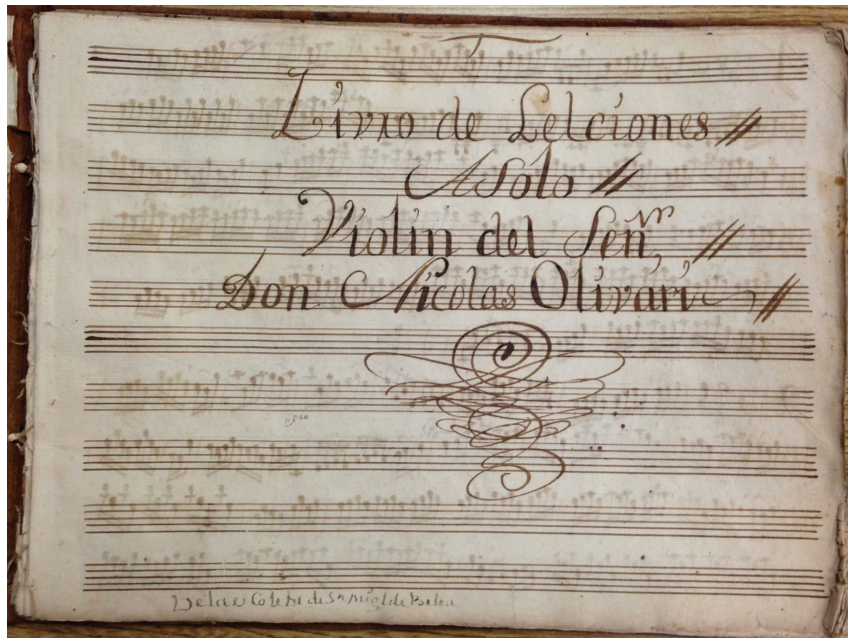 Livro de Lelciones //
A Solo //
Violin del Señ.ʳ //
Don Nicolas Olivari //
De la es Coleta de Sn Migl de Belen